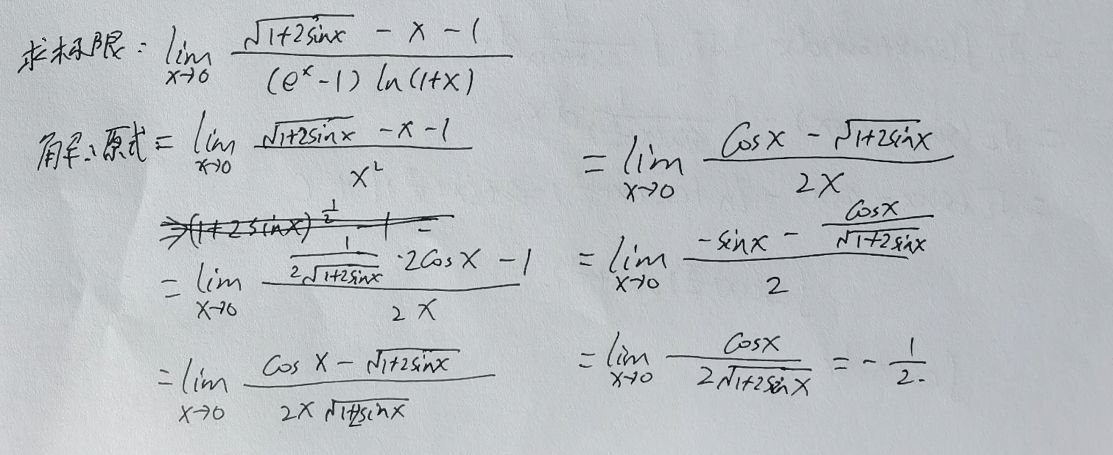 求极限: lim x→0 (√(1+2sinx) - x - 1) / ((e^x - 1) ln(1+x))
解: 原式 = lim x→0 (√(1+2sinx) - x - 1) / x²
= lim x→0 (1/(2√(1+2sinx)) · 2cosx - 1) / 2x
= lim x→0 (cosx - √(1+2sinx)) / (2x√(1+2sinx))
= lim x→0 (cosx - √(1+2sinx)) / 2x
= lim x→0 (-sinx - cosx/√(1+2sinx)) / 2
= lim x→0 cosx / (2√(1+2sinx)) = -1/2.